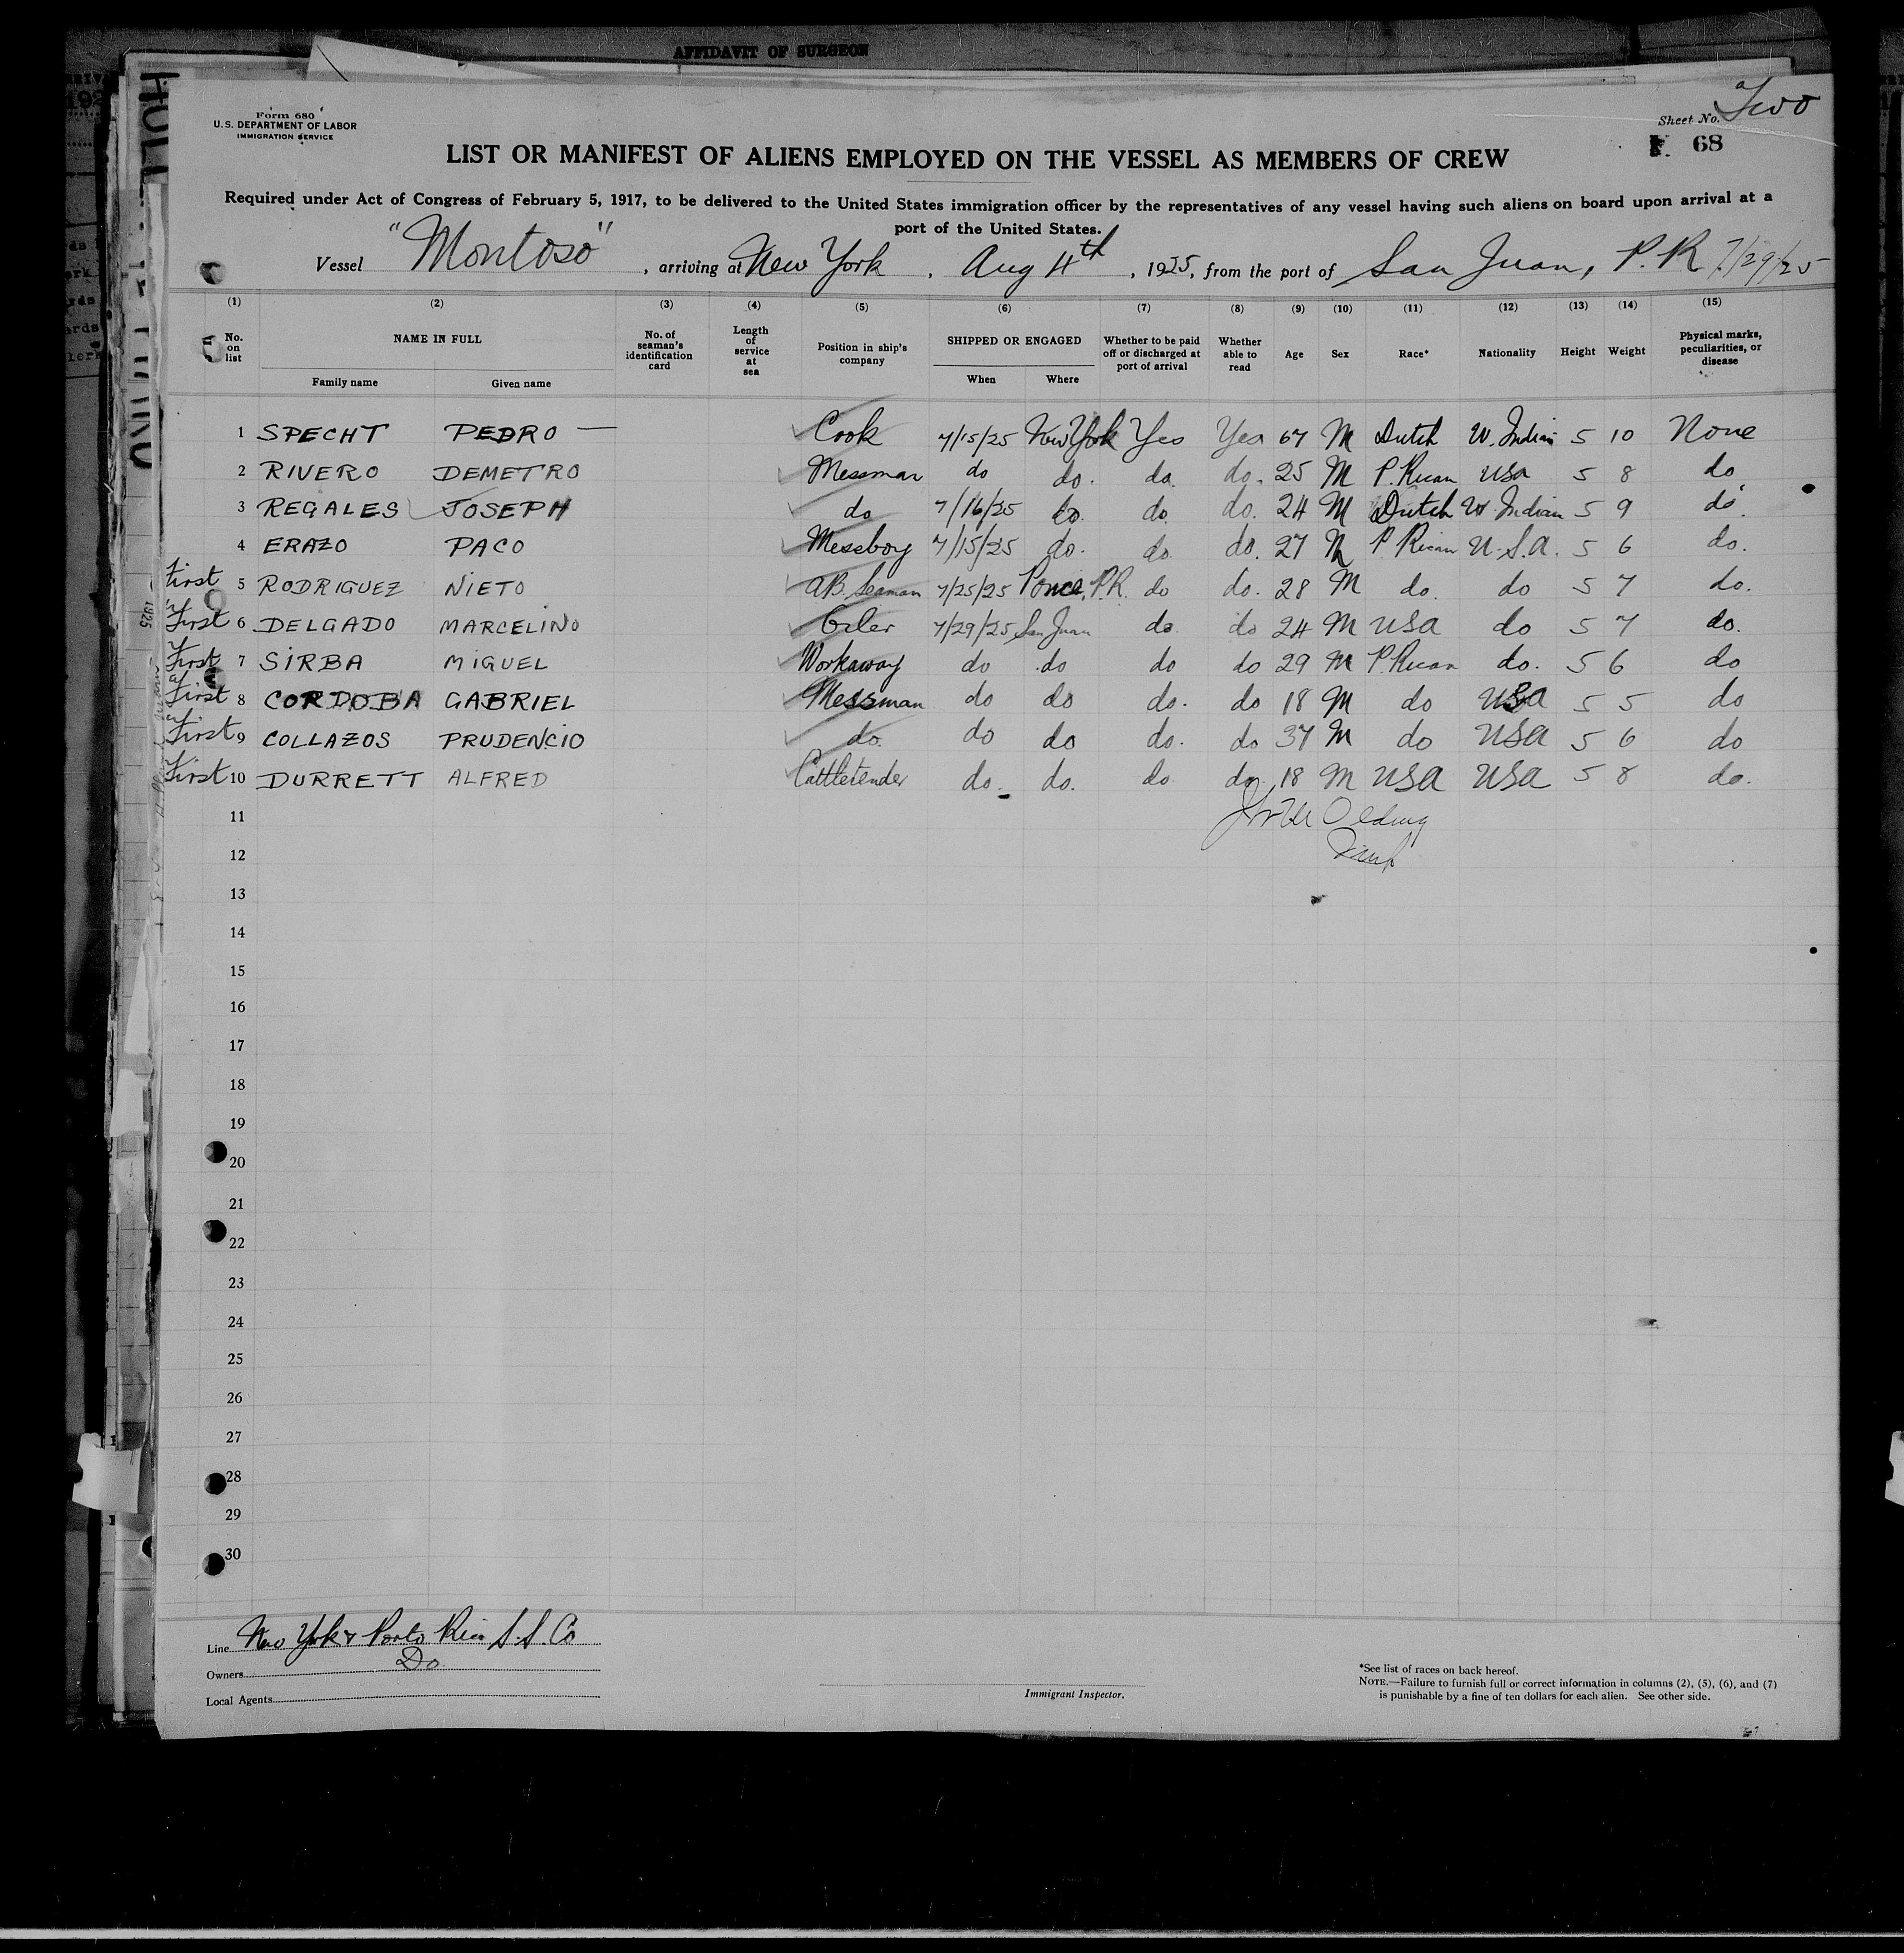 AFFIDAVIT OF SURGEON
Form 680
U.S. DEPARTMENT OF LABOR
IMMIGRATION SERVICE
Sheet No. Two
68
LIST OR MANIFEST OF ALIENS EMPLOYED ON THE VESSEL AS MEMBERS OF CREW
Required under Act of Congress of February 5, 1917, to be delivered to the United States immigration officer by the representatives of any vessel having such aliens on board upon arrival at a
port of the United States.
Vessel "Montoso", arriving at New York, Aug 4th, 1925, from the port of San Juan, P.R 7/29/25
(1) (2) (3) (4) (5) (6) (7) (8) (9) (10) (11) (12) (13) (14) (15)
No. on list NAME IN FULL Family name Given name No. of seaman's identification card Length of service at sea Position in ship's company SHIPPED OR ENGAGED When Where Whether to be paid off or discharged at port of arrival Whether able to read Age Sex Race* Nationality Height Weight Physical marks, peculiarities, or disease
1 SPECHT PEDRO — Cook 7/15/25 New York Yes Yes 67 M Dutch W. Indian 5 10 None
2 RIVERO DEMETRO Messman do do. do. do. 25 M P. Rican USA 5 8 do
3 REGALES JOSEPH do 7/16/25 do. do. do. 24 M Dutch W. Indian 5 9 do.
4 ERAZO PACO Messboy 7/15/25 do. do. do. 27 M P Rican U.S.A. 5 6 do.
First 5 RODRIGUEZ NIETO AB. Seaman 7/25/25 Ponce, P.R. do do. 28 M do. do 5 7 do.
First 6 DELGADO MARCELINO Oiler 7/29/25 San Juan do. do 24 M USA do 5 7 do.
First 7 SIRBA MIGUEL Workaway do do do do 29 M P. Rican do. 5 6 do
First 8 CORDOBA GABRIEL Messman do do do. do 18 M do USA 5 5 do
First 9 COLLAZOS PRUDENCIO do. do do do. do 37 M do USA 5 6 do
First 10 DURRETT ALFRED Cattletender do. do. do do. 18 M USA USA 5 8 do.
11
12
13
14
15
16
17
18
19
20
21
22
23
24
25
26
27
28
29
30
Line New York & Porto Rico S.S. Co
Owners Do
Local Agents
Immigrant Inspector.
*See list of races on back hereof.
NOTE.—Failure to furnish full or correct information in columns (2), (5), (6), and (7)
is punishable by a fine of ten dollars for each alien. See other side.